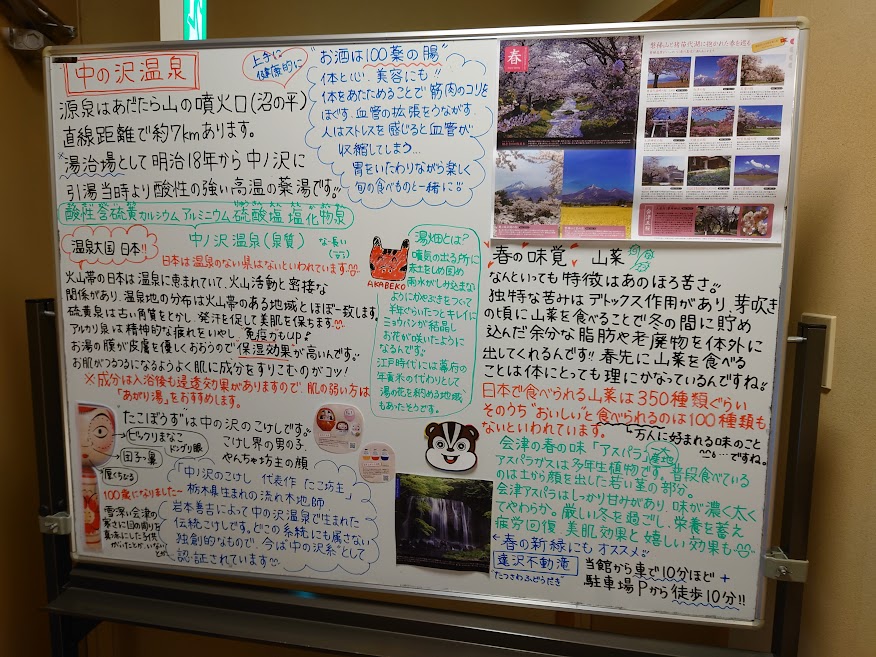 中の沢温泉
源泉はあだたら山の噴火口(沼の平)
直線距離で約7kmあります。
※湯治場として明治18年から中ノ沢に
引湯当時より酸性の強い高温の薬湯です!!
酸性含硫黄カルシウムアルミニウム硫酸塩塩化物泉
中ノ沢温泉(泉質)
な~長い
上手に
健康的に
"お酒は100薬の腸"
体と心、美容にも!!
体をあたためることで筋肉のコリを
ほぐす。血管の拡張をうながす。
人はストレスを感じると血管が
収縮してしまう…
胃をいたわりながら楽しく
旬の食べものと一緒に!!
温泉大国 日本!!
日本は温泉のない県はないといわれています
火山帯の日本は温泉に恵まれていて、火山活動と密接な
関係があり、温泉地の分布は火山帯のある地域とほぼ一致します。
硫黄泉は古い角質をとかし、発汗を促して美肌を保ちます
アルカリ泉は精神的な疲れをいやし、免疫力もUP!
お湯の膜が皮膚を優しくおおうので保湿効果が高いんです!!
お肌がつるつるになるようよく肌に成分をすりこむのがコツ!
※成分は入浴後も浸透効果がありますので、肌の弱い方は
「あがり湯」をおすすめします。
AKABEKO
湯畑とは?
噴気の出る所に
赤土をしき固め
雨水がしみ込まな
ようにかやぶきをつくて
半年ぐらいたつとキレイに
ミョウバンが結晶し
お花が咲いたように
なるんです!!
江戸時代には幕府の
年貢米の代わりとして
湯の花を納める地域
もあったそうです。
"たこぼうず"は中の沢のこけしです。
こけし界の男の子。
やんちゃ坊主の顔
ビックリまなこ
ドングリ眼
団子っ鼻
厚くちびる
100歳になりました~
雪深い会津の
寒さに目の周りを
真赤にした子供
「中ノ沢のこけし 代表作「たこ坊主」
栃木県生まれの流れ木地師、
岩本善吉によって中の沢温泉で生まれた
伝統こけしです。どこの系統にも属さない
独創的なもので、今は"中の沢系"として
認証されています
春
磐梯山と猪苗代湖に抱かれた春を巡る
春の味覚 山菜
なんといっても特徴はあのほろ苦さ!!
独特な苦みはデトックス作用があり、芽吹き
の頃に山菜を食べることで冬の間に貯め
込んだ余分な脂肪や老廃物を体外に
出してくれるんです!! 春先に山菜を食べる
ことは体にとっても理にかなっているんですね!!
日本で食べられる山菜は350種類ぐらい
そのうち"おいしい"と食べられるのは100種類も
ないといわれています。
万人に好まれる味のこと
…ですね。
会津の春の味「アスパラ」大産地
アスパラガスは多年生植物です。普段食べている
のは土から顔を出した若い茎の部分。
会津アスパラはしっかり甘みがあり、味が濃く太く
てやわらか。厳しい冬を過ごし、栄養を蓄え
疲労回復 美肌効果と嬉しい効果も
春の新緑にもオススメ!!
達沢不動滝
"たつさわふどうだき"
当館から車で10分ほど+
駐車場Pから徒歩10分!!